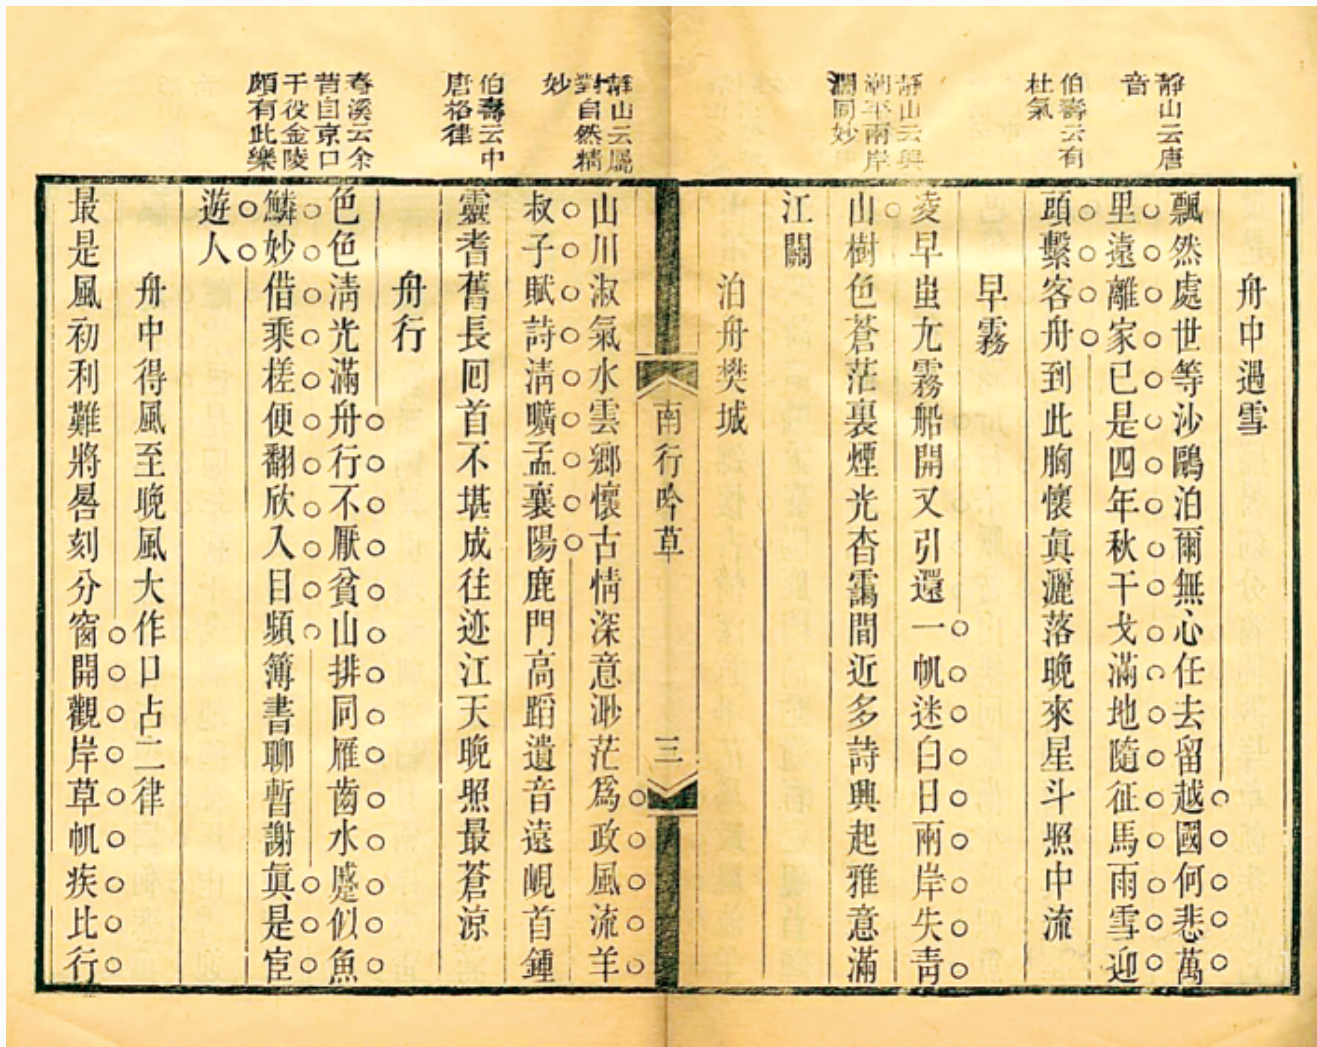 靜山云唐
音
伯壽云有
杜氣
靜山云與
潮平兩岸
濶同妙
舟中遇雪
飄然處世等沙鷗泊爾無心任去留越國何悲萬
里遠離家已是四年秋干戈滿地隨征馬雨雪迎
頭繫客舟到此胸懷眞灑落晚來星斗照中流
早霧
凌早蚩尤霧船開又引還一帆迷白日兩岸失靑
山樹色蒼茫裏煙光杳靄間近多詩興起雅意滿
江關
泊舟樊城
南行吟草
三
靜山云屬
對自然精
妙
伯壽云中
唐格律
春溪云余
昔自京口
于役金陵
頗有此樂
山川淑氣水雲鄉懷古情深意渺茫爲政風流羊
叔子賦詩淸曠孟襄陽鹿門高蹈遺音遠峴首鍾
靈耆舊長回首不堪成往迹江天晚照最蒼涼
舟行
色色淸光滿舟行不厭貧山排同雁齒水蹙似魚
鱗妙借乘槎便翻欣入目頻簿書聊暫謝眞是宦
遊人
舟中得風至晚風大作口占二律
最是風初利難將晷刻分窗開觀岸草帆疾比行